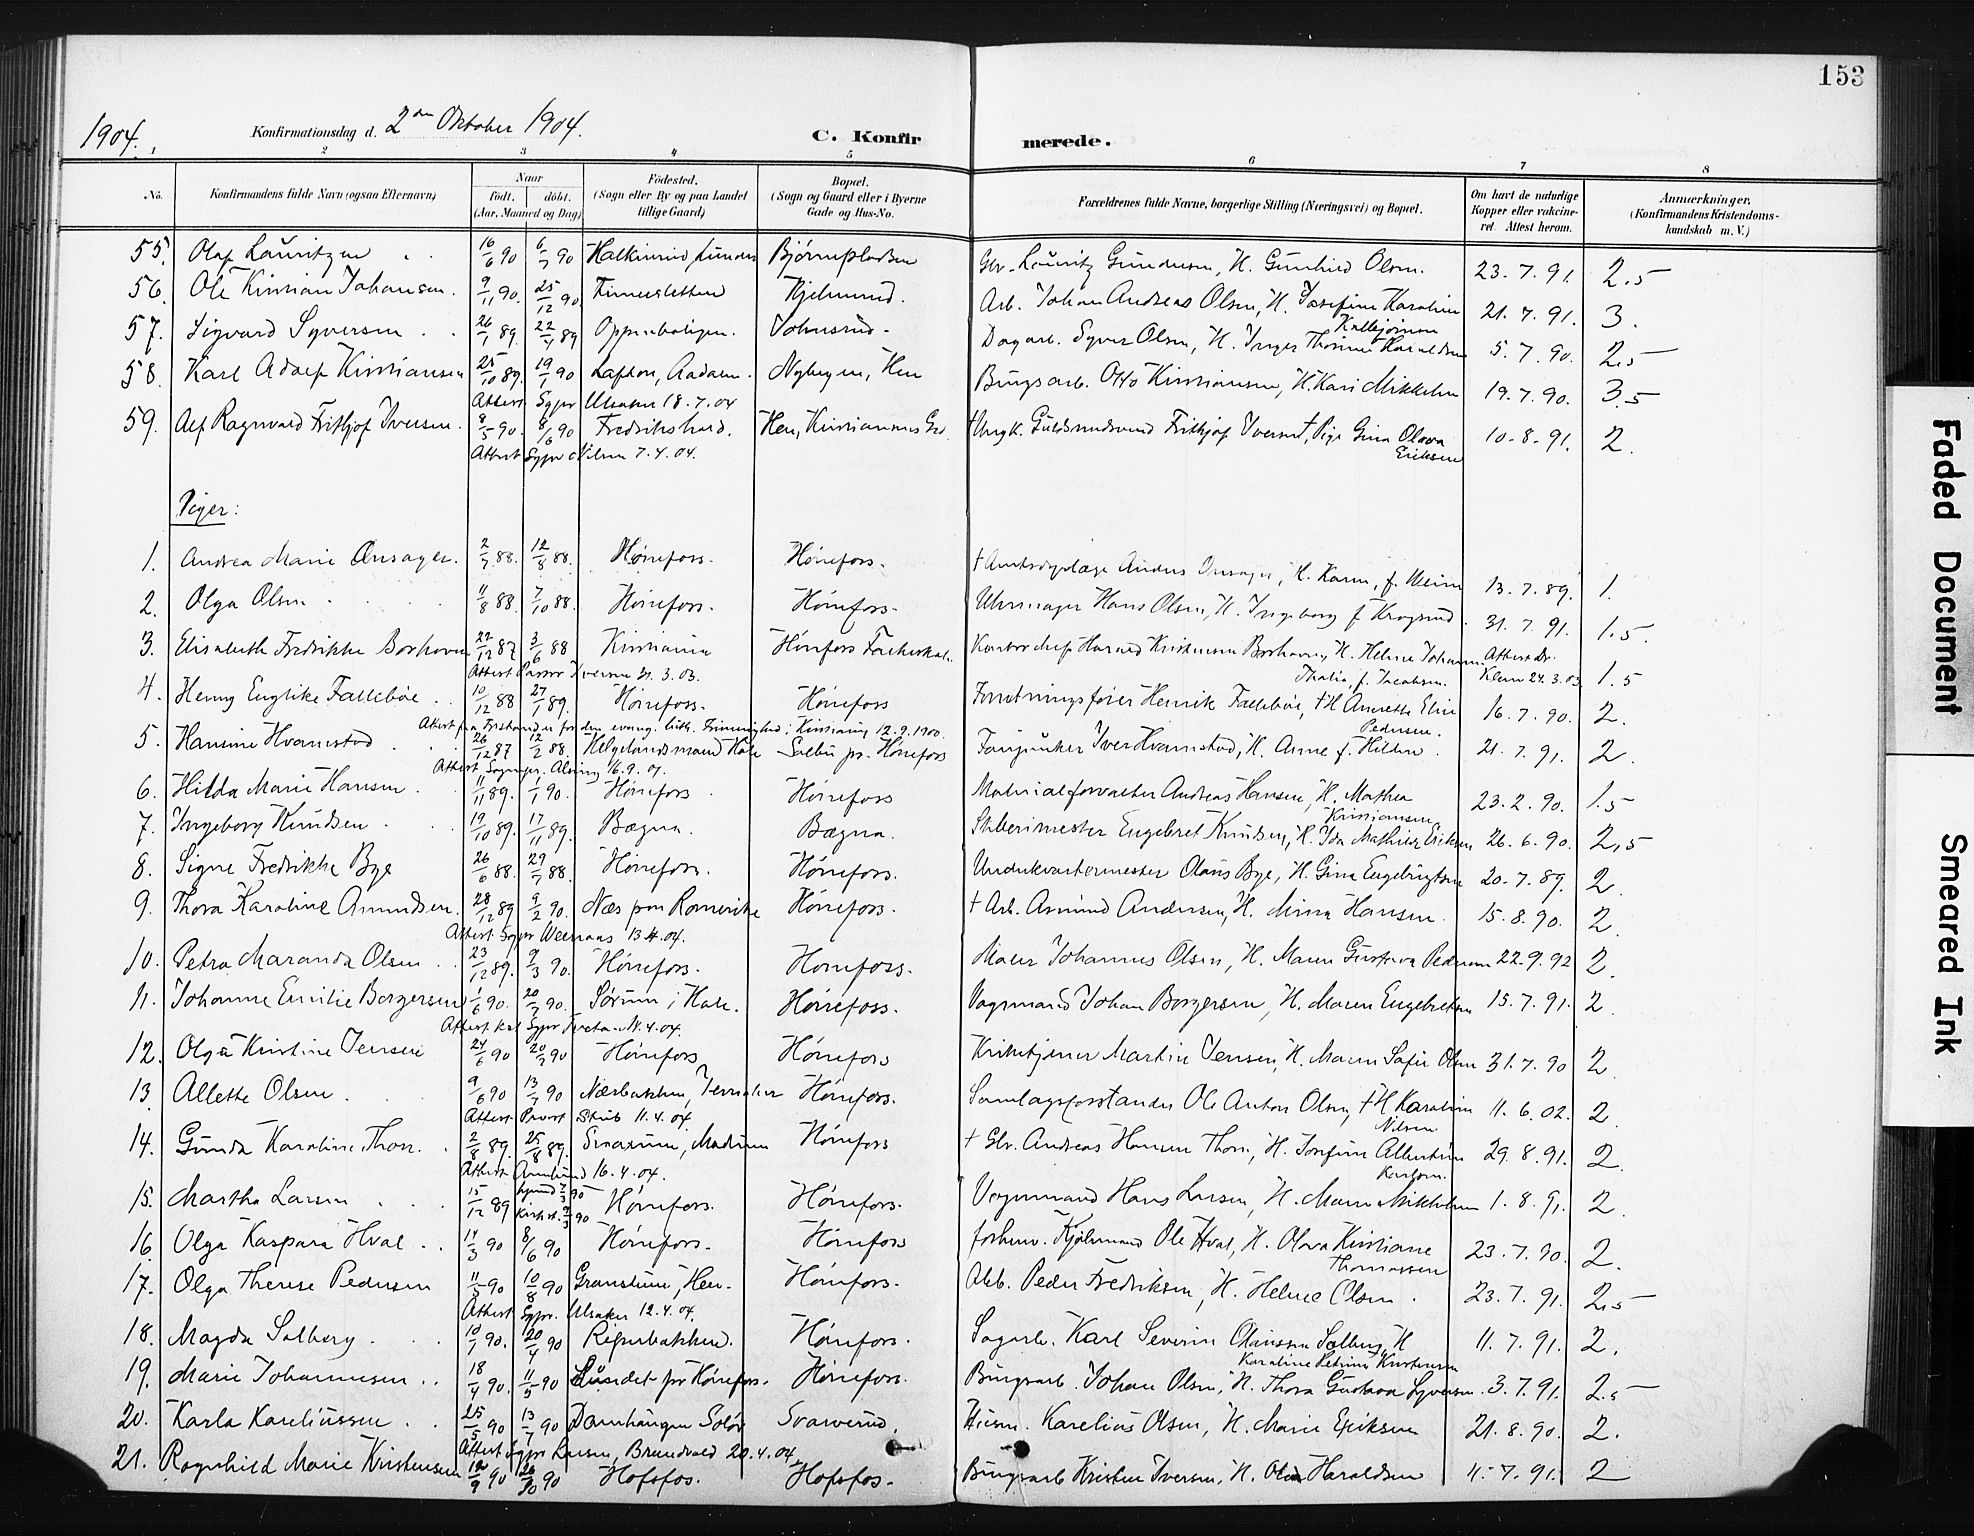 153
1904.
Konfirmationsdag d. 2den Oktober 1904.
C. Konfirmerede.
1 2 3 4 5 6 7 8
No. Konfirmandens fulde Navn (ogsaa Efternavn) Naar født. døbt. (Aar, Maaned og Dag) Fødested. (Sogn eller By og paa Landet tillige Gaard) Bopæl. (Sogn og Gaard eller i Byerne Gade og Hus-No. Forældrenes fulde Navne, borgerlige Stilling (Næringsvei) og Bopæl. Om havt de naturlige Kopper eller vakcineret. Attest herom. Anmærkninger. (Konfirmandens Kristendomskundskab m. V.)
55. Olaf Lauritzen 16/6 90 6/7 90 Bjørnepladsen Lauritz Gundersen, H. Gunhild Olsen. 23.7.91. 2.5
56. Ole Kristian Johansen. 9/11 90. 25/12 90 Kjelsrud. Arb. Johan Andreas Olsen, H. Josefine Karoline 21.7.91. 3.
57. Sigvard Syversen 26/1 89. 22/4 89 Oppenboligen. Dagarb. Syver Olsen, H. Inger Thorine Haraldsen 5.7.90. 2.5
58. Karl Adolf Kristiansen 25/10 89. 19/1 90 Nybyen, Hen Brugsarb. Otto Kristiansen, H. Kari Mikkelsen 19.7.90. 3.5
Attest Sgpr Ulsaker 18.7.04
59. Alf Ragnvald Frithjof Iversen. 8/5 90. 8/6 90 Fredrikshald. Hen, Kristiansens Gd. Ungk. Guldsmedsvend Frithjof Iversen, Pige Gina Olava Eriksen 10.8.91. 2.
Attest Sgpr Nilsen 7.4.04.
Piger:
1. Andrea Marie Onsager. 2/7 88. 12/8 88. Hønefoss. Hønefoss. † Amtsdyrlæge Anders Onsager, H. Karen, f. 13.7.89. 1.
2. Olga Olsen 11/8 88. 7/10 88. Hønefoss. Hønefoss. Uhrmager Hans Olsen, H. Ingeborg f. Krogsrud. 31.7.91. 1.5.
3. Elisabeth Fredrikke Borkhaven 22/12 87 3/6 88 Kristiania Hønefoss Kontorchef Harald Kristensen H. Helene Johanne Thalia, f. Jacobsen. Attest Dr. Klem 24.3.03. 1.5
Attest Pastor Iversen 31.3.03.
4. Henny Englike Fallebøe 10/12 88 27/1 89. Hønefoss. Hønefoss Forretningsfører Henrik Fallebøe, † H. Annette Elise Pedersen. 16.7.90. 2.
Attest fra Forstander for den evang. luth. Frimenighed i Kristiania 12.9.1900.
5. Hansine Hvamstad 26/12 87 12/2 88. Helgelandsmoen Hole pr. Hønefoss Fanejunker Iver Hvamstad, H. Anne f. Hilden. 21.7.91. 2.
Attest Sognepr. Alsing 16.9.01.
6. Hilda Marie Hansen 11/11 89. 1/1 90. Hønefoss Hønefoss Materialforvalter Andreas Hansen, H. Mathea Kristiansen 23.2.90. 1.5
7. Ingeborg Knudsen 19/10 89. 17/11 89. Bægna. Bægna. Sliberimester Engebret Knudsen, H. Ida Mathilde Eriksen 26.6.90. 2,5
8. Signe Fredrikke Bye 26/6 88. 29/7 88. Hønefoss. Hønefoss. Underkvartermester Olaus Bye, H. Gina Engebrigtsen 20.7.89. 2.
9. Thora Karoline Amundsen. 28/12 89 9/2 90. Næs paa Romerike Hønefoss. † Arb. Amund Andersen, H. Mina Hansen. 15.8.90. 2.
Attest Sgpr 13.4.04.
10. Petra Maranda Olsen 23/12 89. 9/3 90. Hønefoss. Hønefoss. Maler Johannes Olsen, H. Maren Gustava Pedersen 22.9.92 2.
11. Johanne Emilie Borgersen 1/6 90. 20/7 90. Sørum i Hole. Hønefoss. Vognmand Johan Borgersen, H. Maren Engebretsen 15.7.91. 2.
Attest Sgpr 11.4.04.
12. Olga Kristine Jensen 24/6 90 20/7 90 Hønefoss Hønefoss Kirketjener Martin Jensen, H. Maren Sofie Olsen 31.7.90 2.
13. Allette Olsen 9/6 90 13/7 90 Nærbakken, Jevnaker Hønefoss. Samlagsforstander Ole Anton Olsen, † H. Karoline Nilsen 11.6.02. 2.
Attest Provst Strøb 11.4.04.
14. Gunda Karoline Thon. 2/8 89. 25/8 89. Modum Hønefoss † Andreas Hansen Thon, H. Josefine Albertine Karlsen. 29.8.91. 2.
Attest 16.4.04.
15. Martha Larsen 15/12 89 90 Hønefoss. Hønefoss. Vognmand Hans Larsen, H. Maren Mikkelsen 1.8.91. 2.
16. Olga Kaspara Hval 14/3 90 8/6 90 Hønefoss. Hønefoss forhenv. Kjøbmand Ole Hval, H. Olava Kristiane Thomassen 23.7.90. 2.
17. Olga Therese Pedersen 11/5 90 10/8 90 Granstuen, Hen. Hønefoss. Arb. Peder Fredriksen, H. Helene Olsen. 23.7.91. 2.5
Attest Sgpr. Ulsaker 12.4.04.
18. Magda Solberg 10/1 90. 20/4 90 Hønefoss. Sagarb. Karl Severin Olaussen Solberg, H. Karoline Petrine Kristensen 11.7.91. 2.
19. Marie Johannesen 18/4 90. 11/5 90 Lundet pr Hønefoss. Hønefoss. Brugsarb. Johan Olsen, H. Thora Gustava Syversen. 3.7.91. 2.5
20. Karla Kareliussen 25/5 90 13/7 90 Damhaugen Solør Svarverud. Husm. Karelius Olsen, H. Marie Eriksen 21.8.90. 2.
Attest Sgpr Larsen, Brandvold 20.4.04.
21. Ragnhild Marie Kristensen 12/9 90 26/10 90 Hofsfos. Hofsfos. Brugsarb Kristen Iversen, H. Haraldsen 11.7.91. 2
Faded Document
Smeared Ink